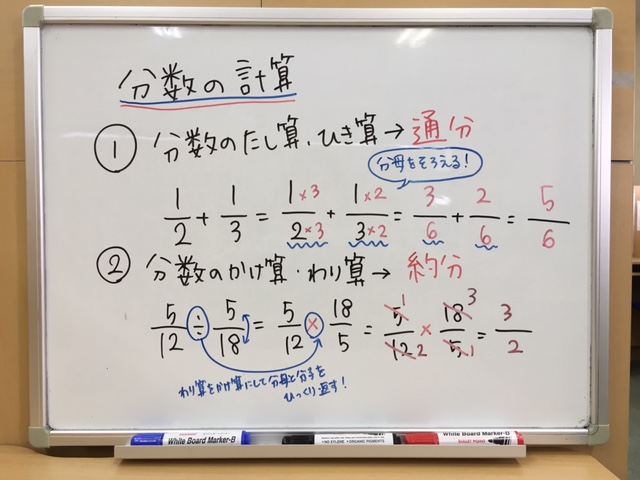 分数の計算
① 分数のたし算・ひき算→通分
分母をそろえる!
1/2 + 1/3 = 1×3/2×3 + 1×2/3×2 = 3/6 + 2/6 = 5/6
② 分数のかけ算・わり算→約分
5/12 ÷ 5/18 = 5/12 × 18/5 = 5 1/12 2 × 18 3/5 1 = 3/2
わり算をかけ算にして分母と分子を
ひっくり返す!
White Board Marker-B
• NO XYLENE • ORGANIC PIGMENTS
White Board Marker-B